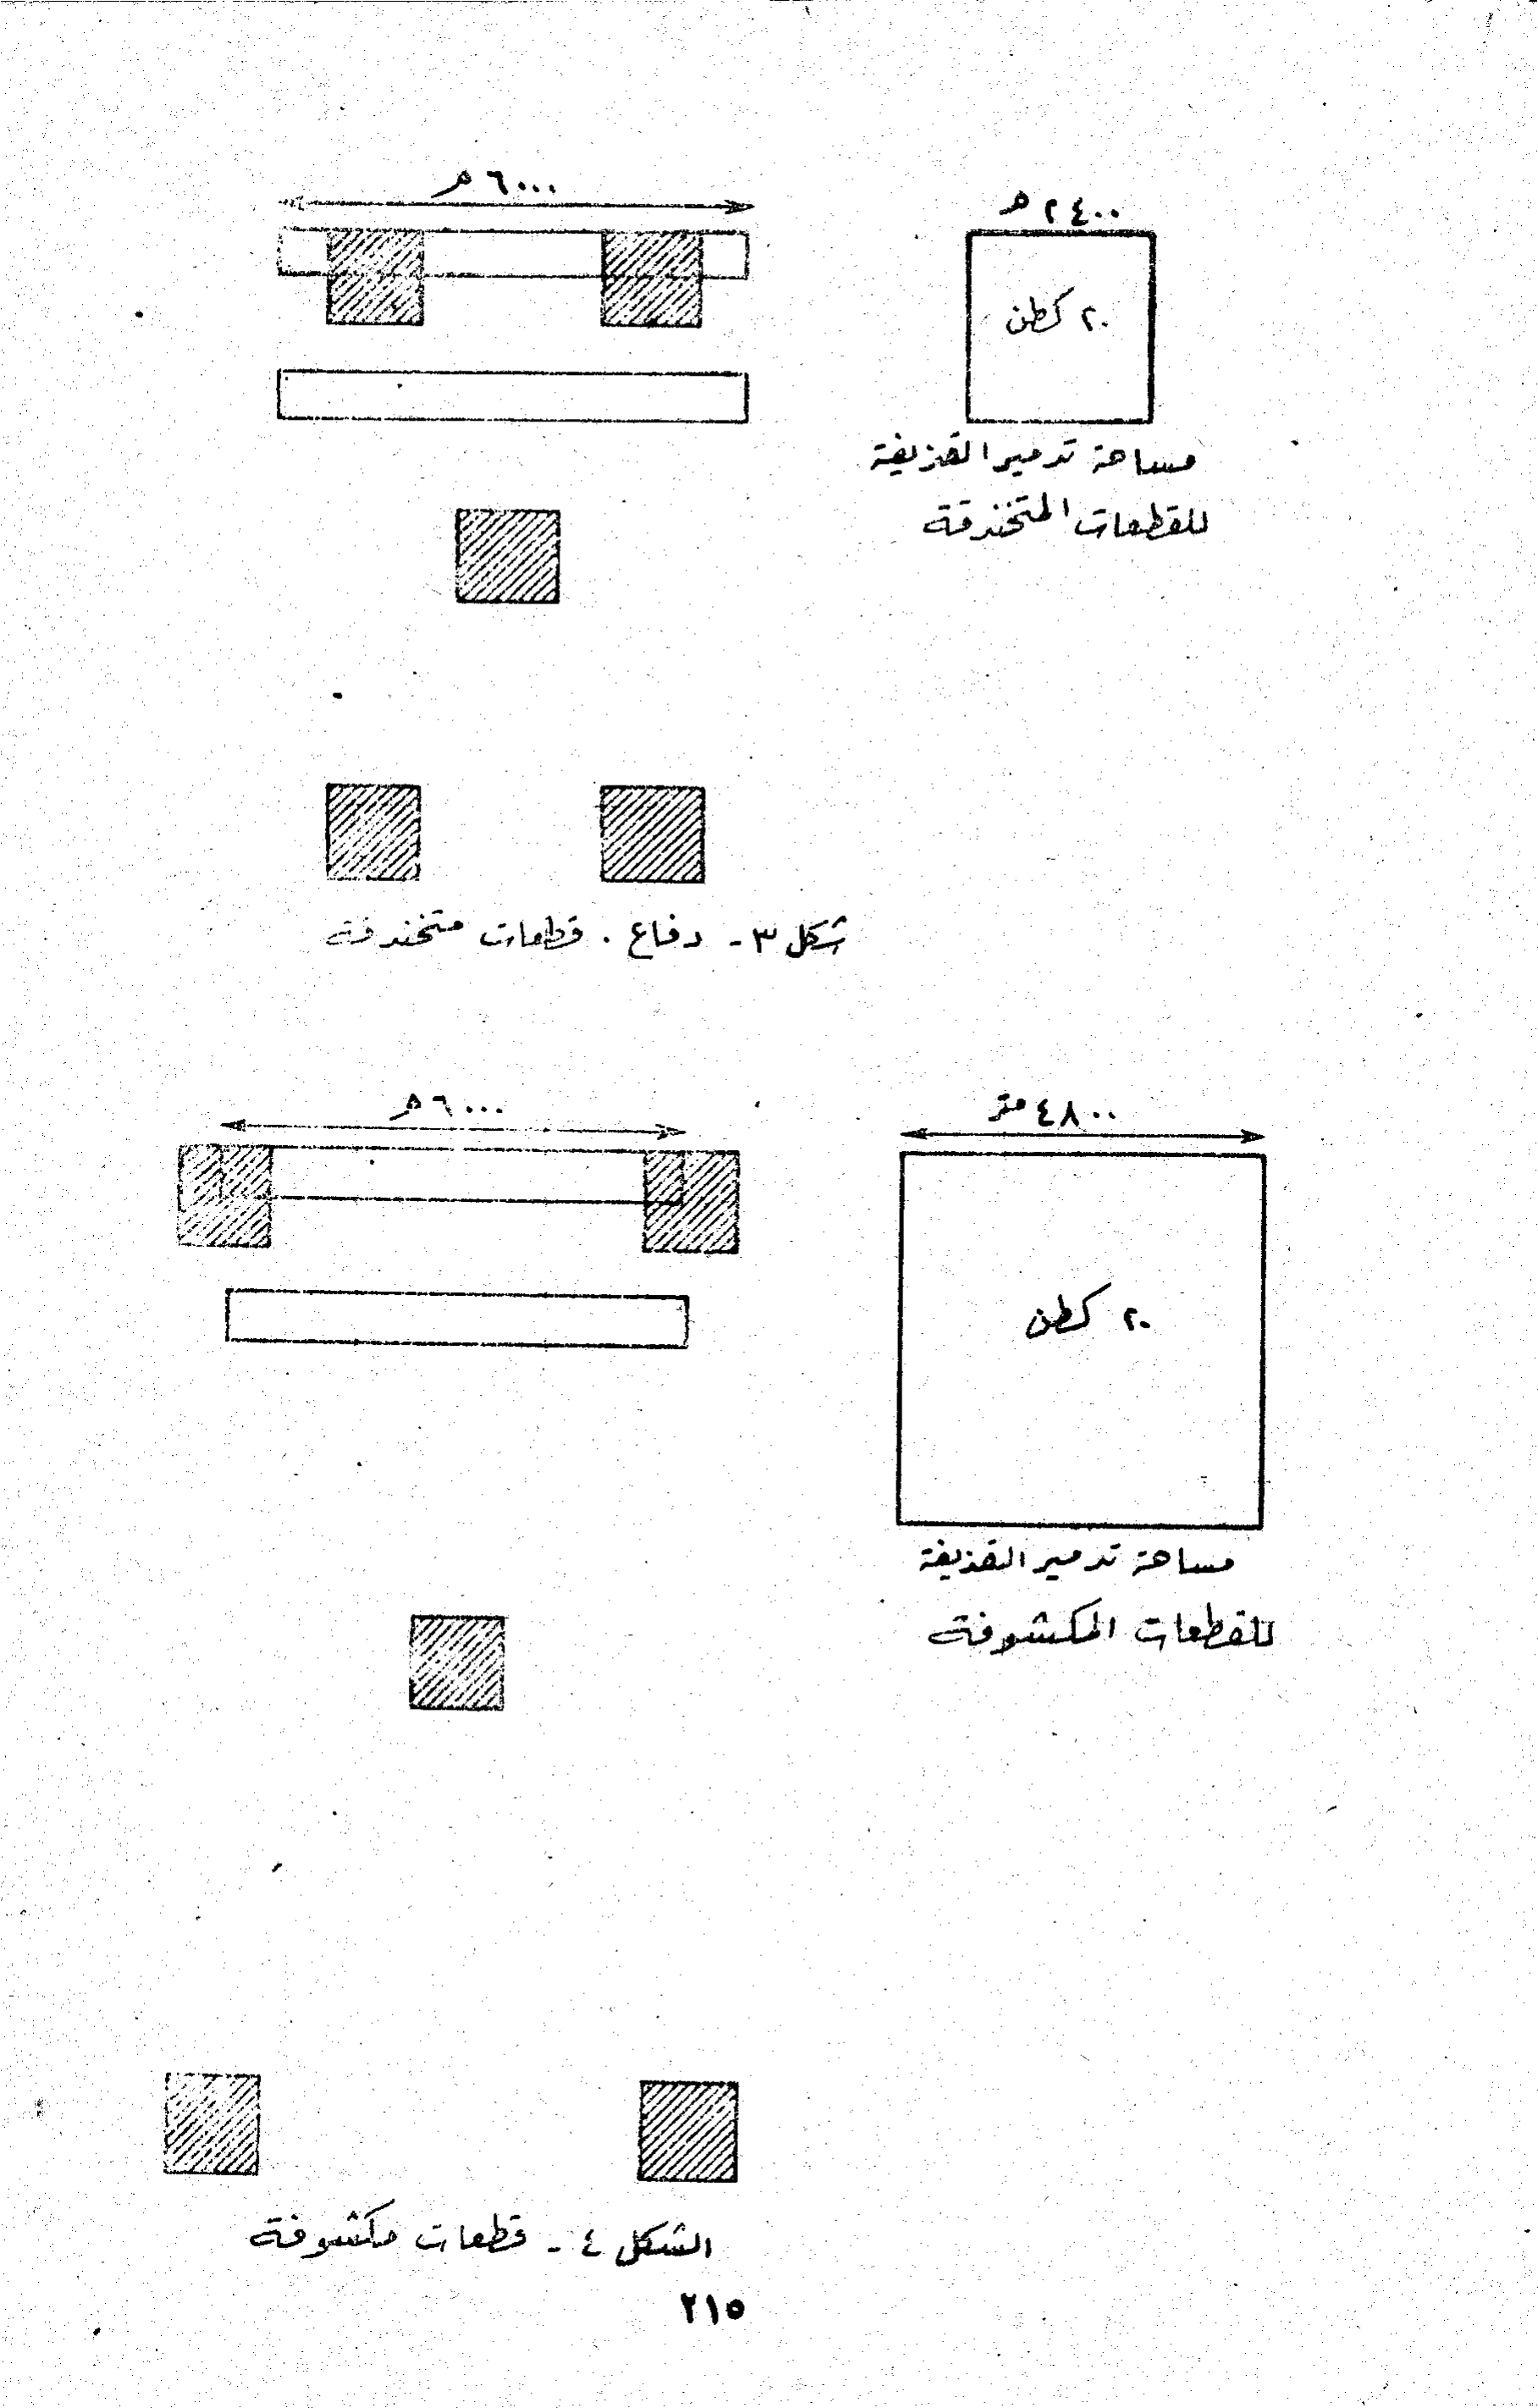 ٦٠٠٠ م
٢٤٠٠ م
٢٠ كطن
مساحة تدمير القذيفة
للقطعات المتخندقة
شكل ٣ - دفاع . قطعات متخندقة
٦٠٠٠ م
٤٨٠٠ متر
٢٠ كطن
مساحة تدمير القذيفة
للقطعات المكشوفة
الشكل ٤ - قطعات مكشوفة
٢١٥